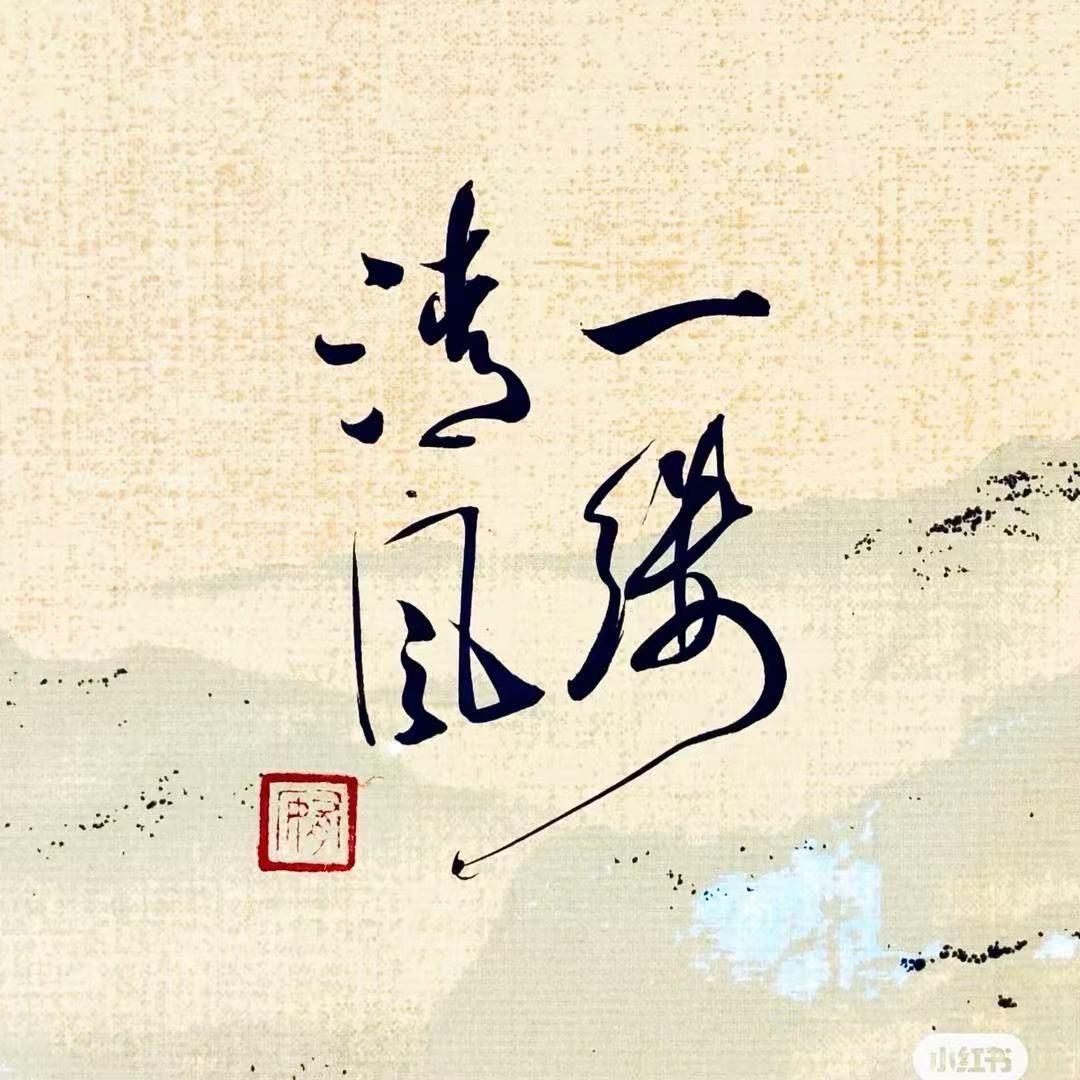 一缕
清风
小红书